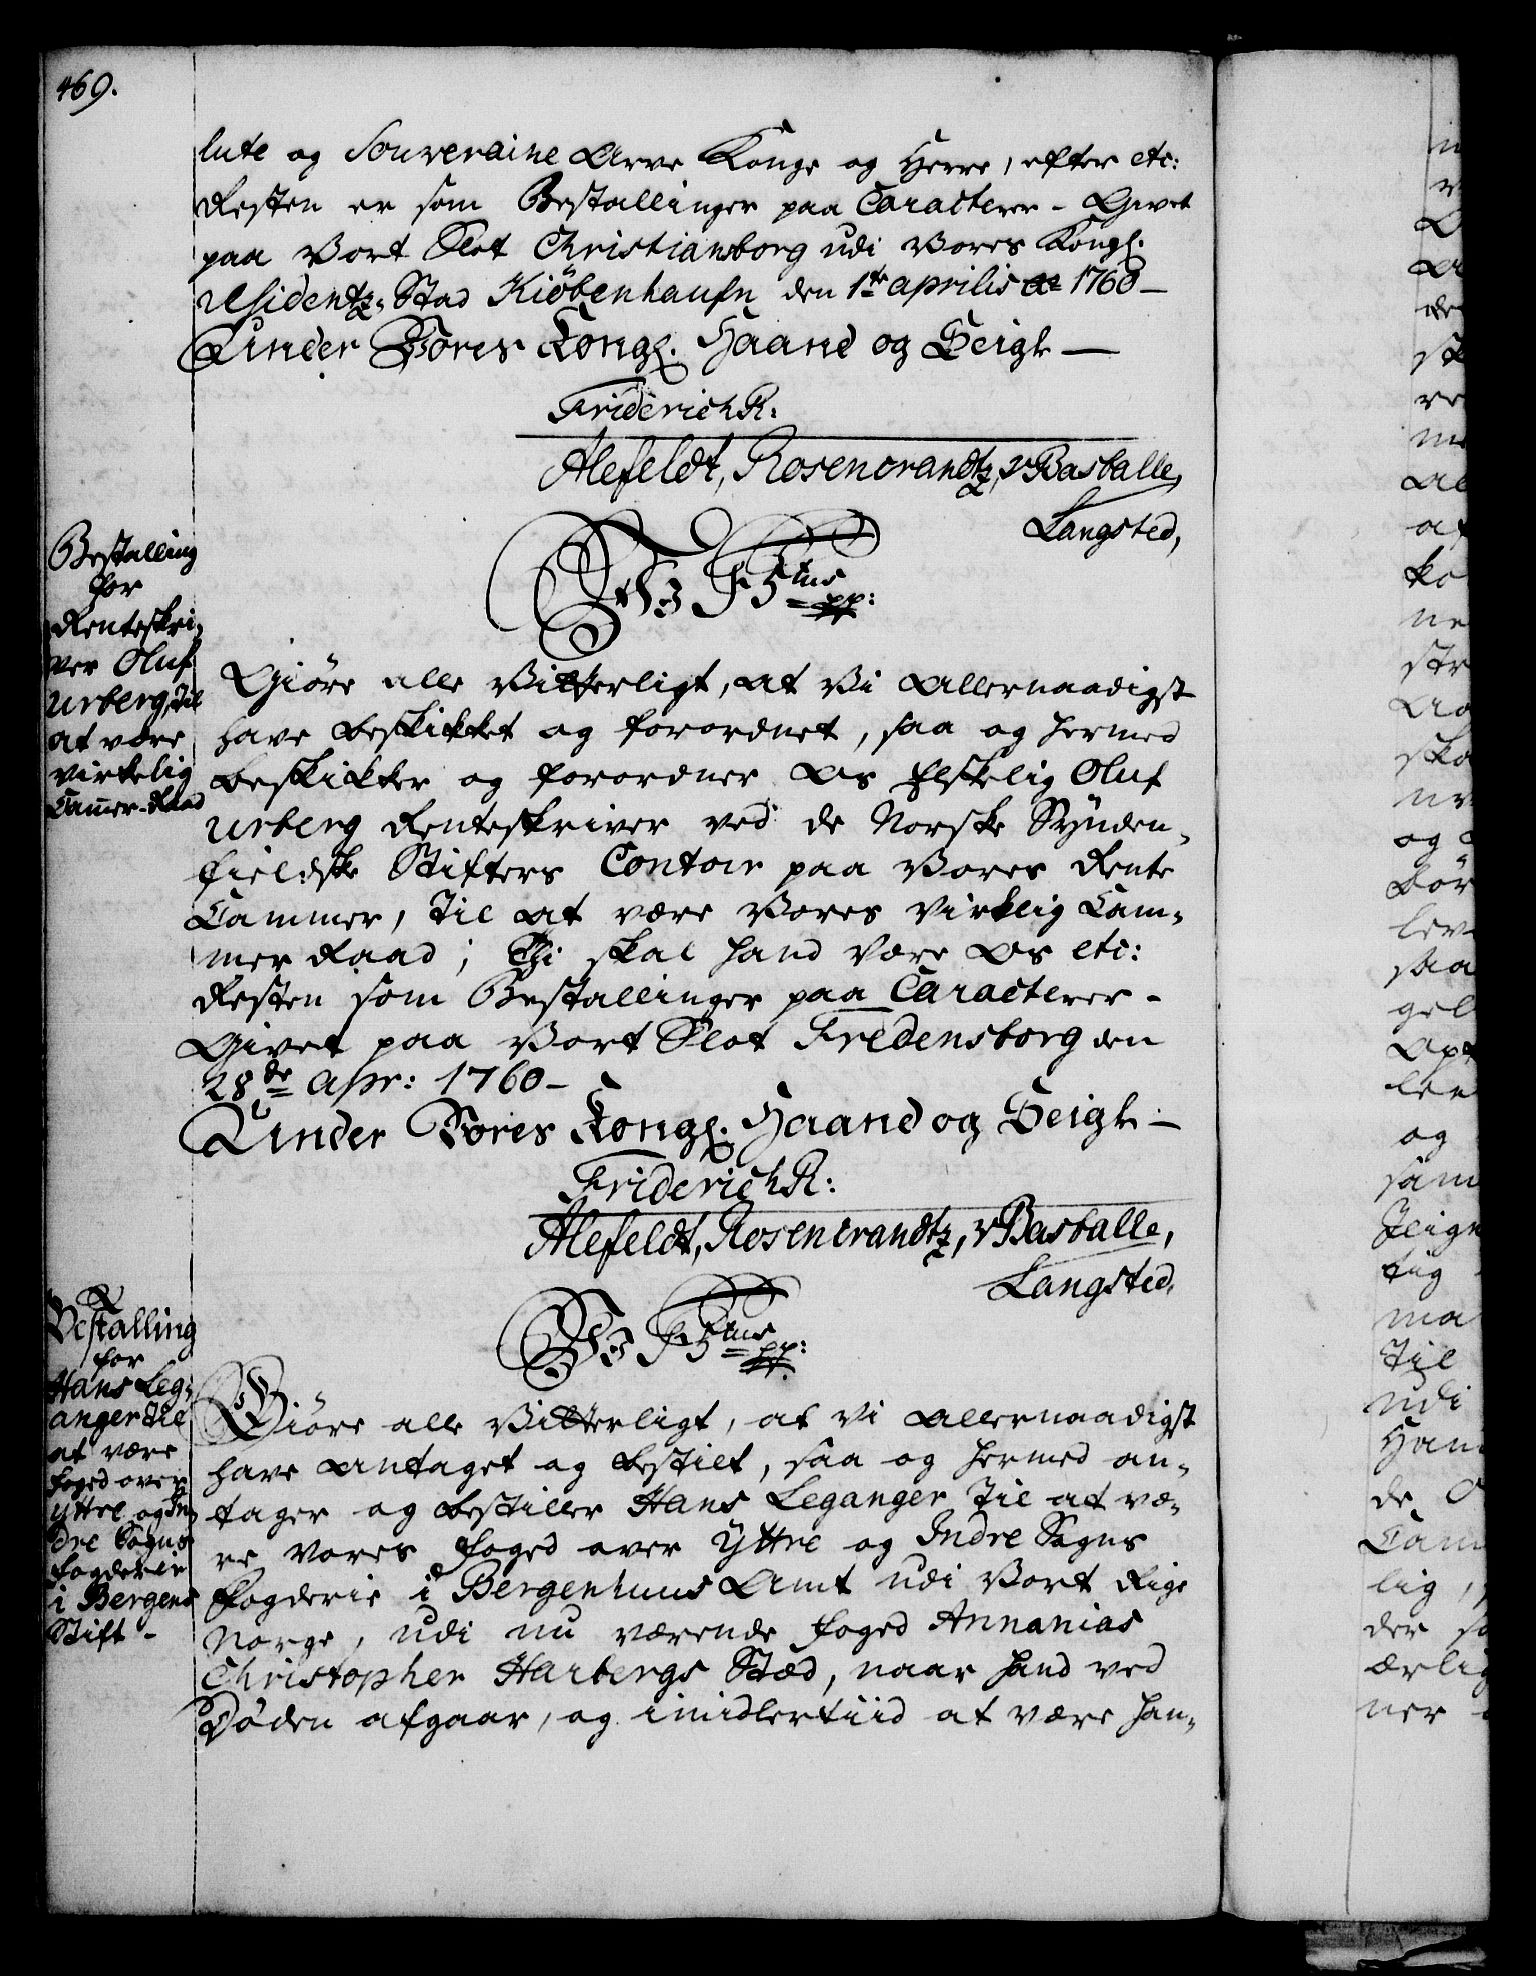 469.
lute og Souveraine Arve Konge og Herre, efter etc:
Resten er som Bestallinger paa Caracterer - Givet
paa Vort Slot Christiansborg udi Vores Kongl.
residentz-Stad Kiöbenhaufn den 1te aprilis 1760 -
Under Vores Kongl. Haand og Seigl -
Friderich R:
Alefeldt, Rosencrandtz, v Basballe,
Langsted,
Bestalling
for
Renteskri-
ver Oluf
Urberg, Til
at være
virkelig
Cammer-Raad
Wi F 5tus pp:
Giöre alle Vitterligt, at Vi Allernaadigst
have beskikket og forordnet, saa og hermed
beskikker og forordner Os Elskelig Oluf
Urberg Renteskriver ved de Norske Synden-
fieldske Stifters Contoir paa Vores Rente
Cammer, Til at være Vores Virkelig Cam-
mer Raad; Thi skal hand være Os etc:
Resten som Bestallinger paa Caracterer -
Givet paa Vort Slot Fredensborg den
28de apr: 1760 -
Under Vores Kongl. Haand og Seigl -
Friderich R:
Alefeldt, Rosencrandtz, v Basballe,
Langsted,
Bestalling
for
Hans Leg-
anger til
at være
foged over
Yttre og In-
dre Sogns
fogderie
i Bergens
Stift -
Wi F 5tus pp:
Giöre alle Vitterligt, at Vi Allernaadigst
have Antaget og bestilt, saa og hermed an-
tager og bestiller Hans Leganger Til at væ-
re Vores foged over Yttre og Indre Sogns
Fogderie i Bergenhuus Amt udi Vort Rige
Norge, udi nu værende foged Annanias
Christopher Harbergs Stæd, naar hand ved
Døden afgaar, og imidlertiid at være han-